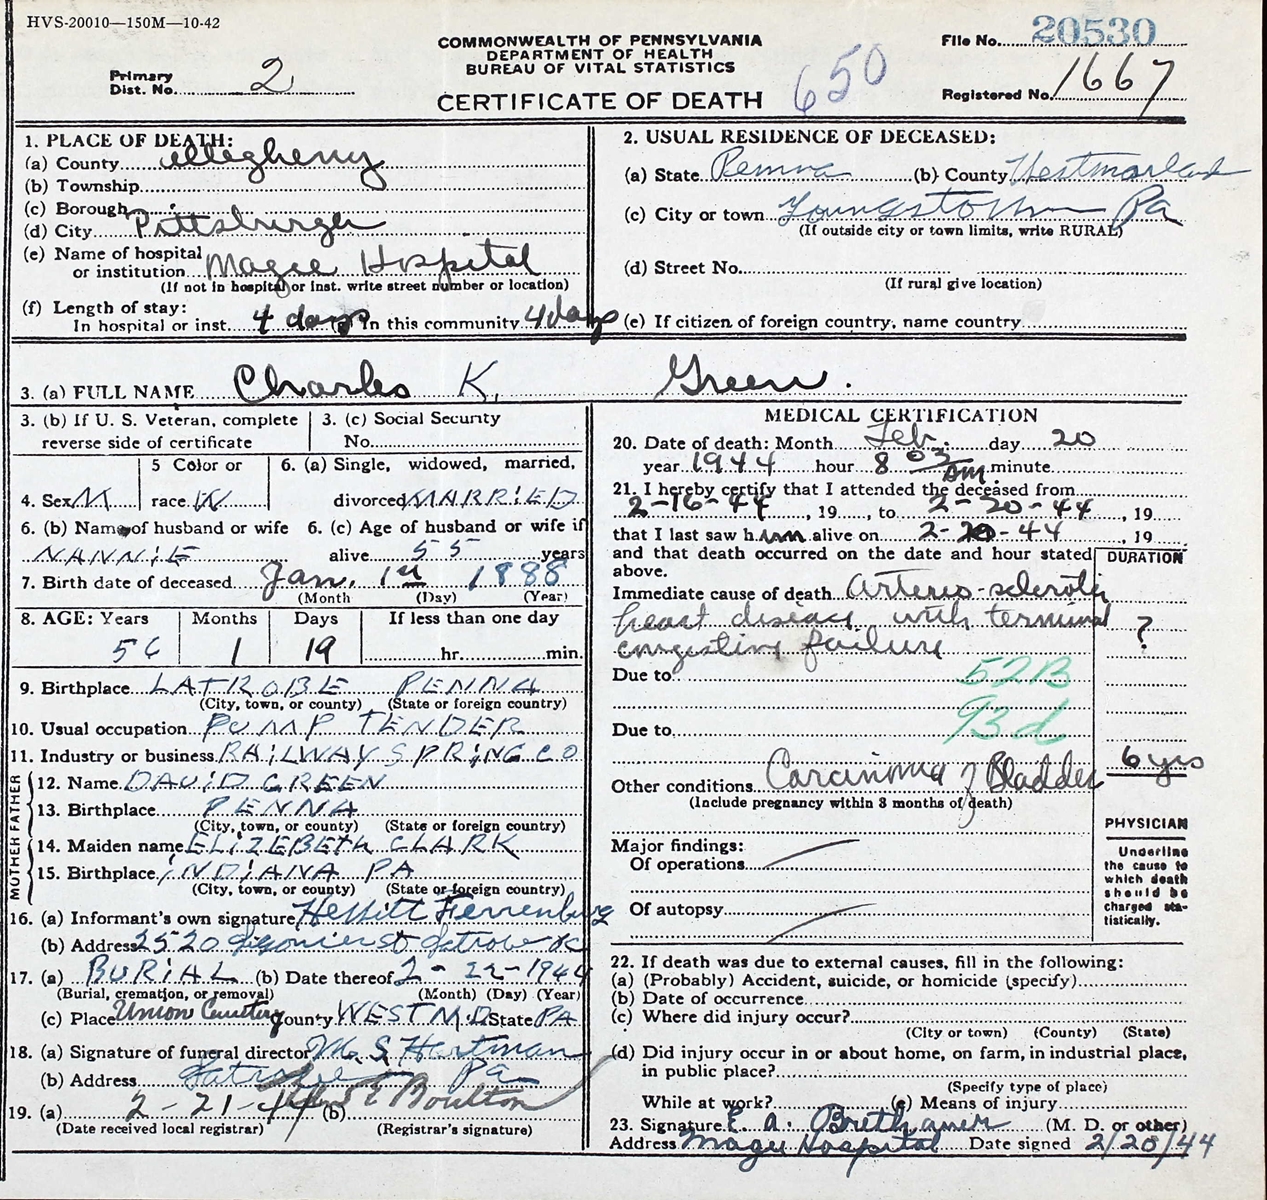 HVS-20010—150M—10-42
COMMONWEALTH OF PENNSYLVANIA
DEPARTMENT OF HEALTH
BUREAU OF VITAL STATISTICS
CERTIFICATE OF DEATH
650
File No. 20530
Primary Dist. No. 2
Registered No. 1667
1. PLACE OF DEATH:
(a) County Allegheny
(b) Township
(c) Borough
(d) City Pittsburgh
(e) Name of hospital
or institution Magee Hospital
(If not in hospital or inst. write street number or location)
(f) Length of stay:
In hospital or inst. 4 days In this community 4 days
2. USUAL RESIDENCE OF DECEASED:
(a) State Penna (b) County Westmorland
(c) City or town Youngstown Pa
(If outside city or town limits, write RURAL)
(d) Street No.
(If rural give location)
(e) If citizen of foreign country, name country
3. (a) FULL NAME Charles K. Green.
3. (b) If U. S. Veteran, complete
reverse side of certificate
3. (c) Social Security
No.
4. Sex M
5 Color or
race W
6. (a) Single, widowed, married,
divorced MARRIED
6. (b) Name of husband or wife
NANNIE
6. (c) Age of husband or wife if
alive 55 years
7. Birth date of deceased Jan. 1st 1888
(Month) (Day) (Year)
8. AGE: Years Months Days If less than one day
56 1 19 hr. min.
9. Birthplace LATROBE PENNA
(City, town, or county) (State or foreign country)
10. Usual occupation PUMP TENDER
11. Industry or business RAILWAY SPRING CO
FATHER
12. Name DAVID GREEN
13. Birthplace PENNA
(City, town, or county) (State or foreign country)
MOTHER
14. Maiden name ELIZEBETH CLARK
15. Birthplace INDIANA PA
(City, town, or county) (State or foreign country)
16. (a) Informant's own signature
(b) Address 2520 Ligonier St Latrobe
17. (a) BURIAL (b) Date thereof 2-22-1944
(Burial, cremation, or removal) (Month) (Day) (Year)
(c) Place Union Cemetery County WESTMD State PA
18. (a) Signature of funeral director M. S. Hartman
(b) Address Latrobe Pa
19. (a) 2-21-44 (b) E Boulton
(Date received local registrar) (Registrar's signature)
MEDICAL CERTIFICATION
20. Date of death: Month Feb. day 20
year 1944 hour 8 03 AM minute
21. I hereby certify that I attended the deceased from
2-16-44, 19 , to 2-20-44, 19
that I last saw him alive on 2-20-44, 19
and that death occurred on the date and hour stated
above.
DURATION
Immediate cause of death Arterio-sclerotic
heart disease with terminal ?
congestive failure
Due to 52B
93d
Due to
Other conditions Carcinoma of Bladder 6 yrs
(Include pregnancy within 3 months of death)
Major findings:
Of operations
Of autopsy
PHYSICIAN
Underline
the cause to
which death
should be
charged sta-
tistically.
22. If death was due to external causes, fill in the following:
(a) (Probably) Accident, suicide, or homicide (specify)
(b) Date of occurrence
(c) Where did injury occur?
(City or town) (County) (State)
(d) Did injury occur in or about home, on farm, in industrial place,
in public place?
(Specify type of place)
While at work? (e) Means of injury
23. Signature E. A. (M. D. or other)
Address Magee Hospital Date signed 2/20/44